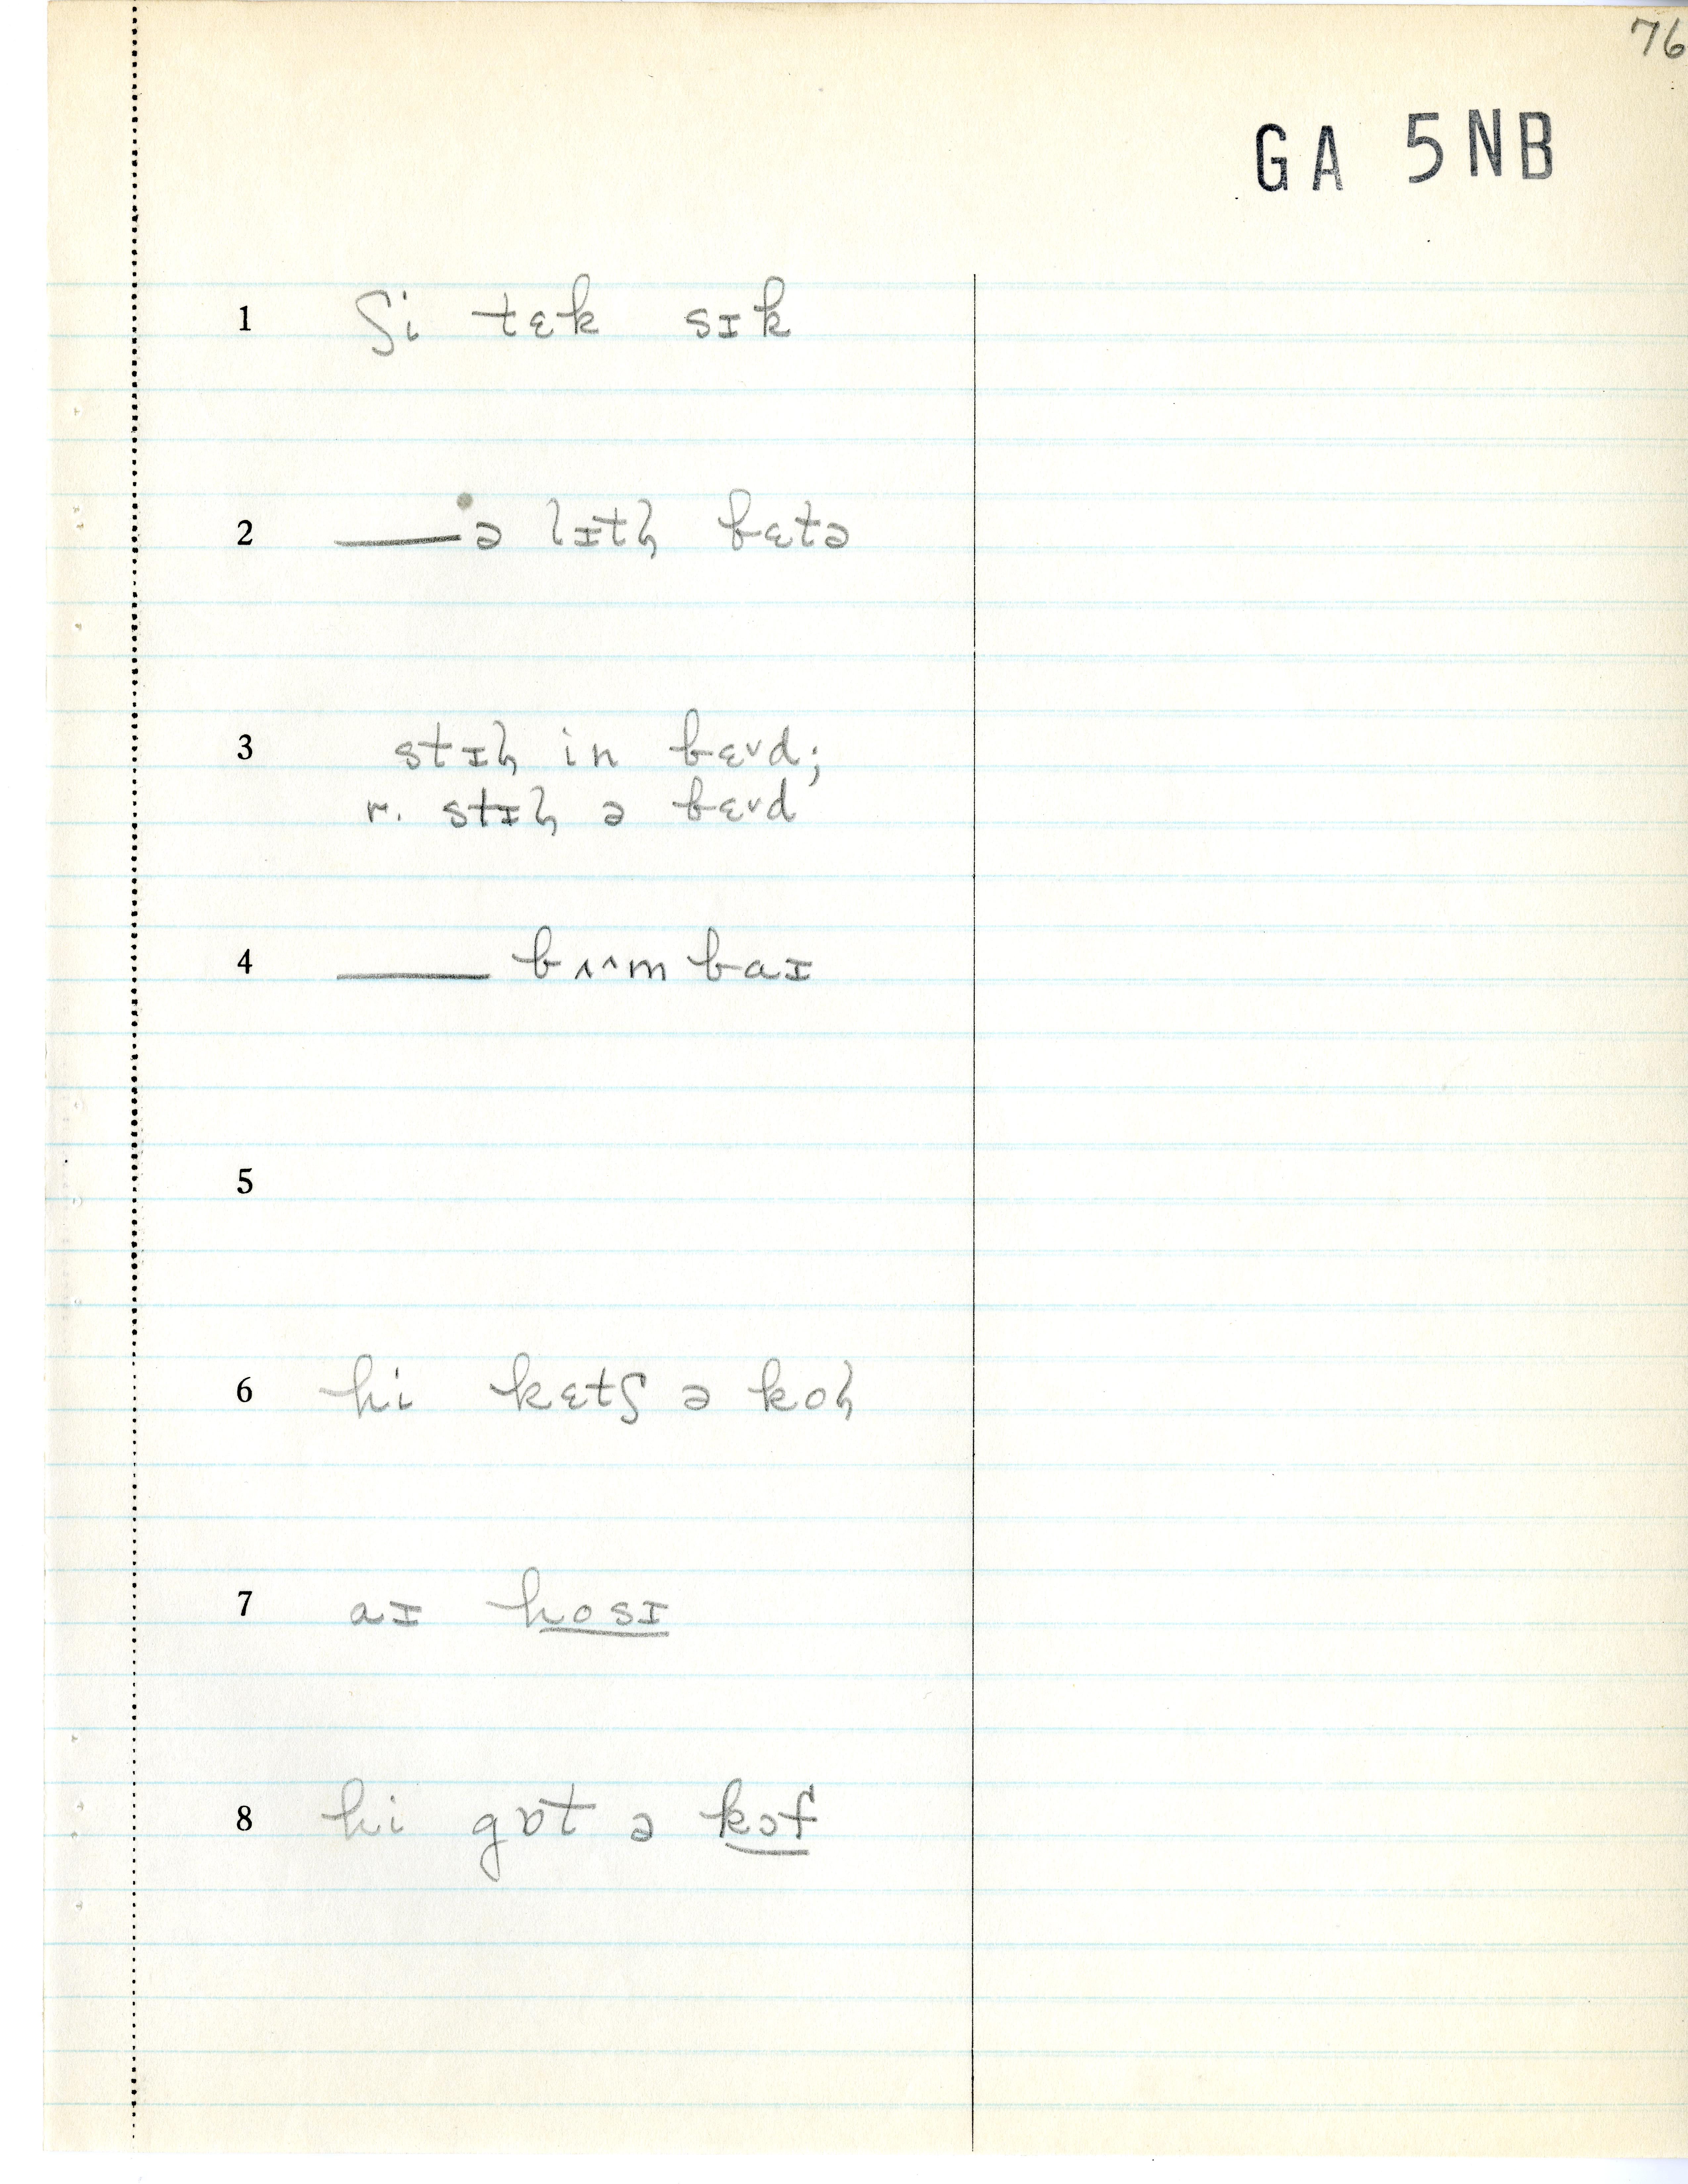 76
GA 5NB
1 ʃi tɛk sɪk
2 ——ə lɪtl̩ bɛtə
3 stɪl̩ in bɛᵛd;
r. stɪl̩ ə bɛᵛd
4 —— bʌ^m baɪ
5
6 hi kɛtʃ ə kol̩
7 aɪ hosɪ
8 hi gɒt ə kɔf